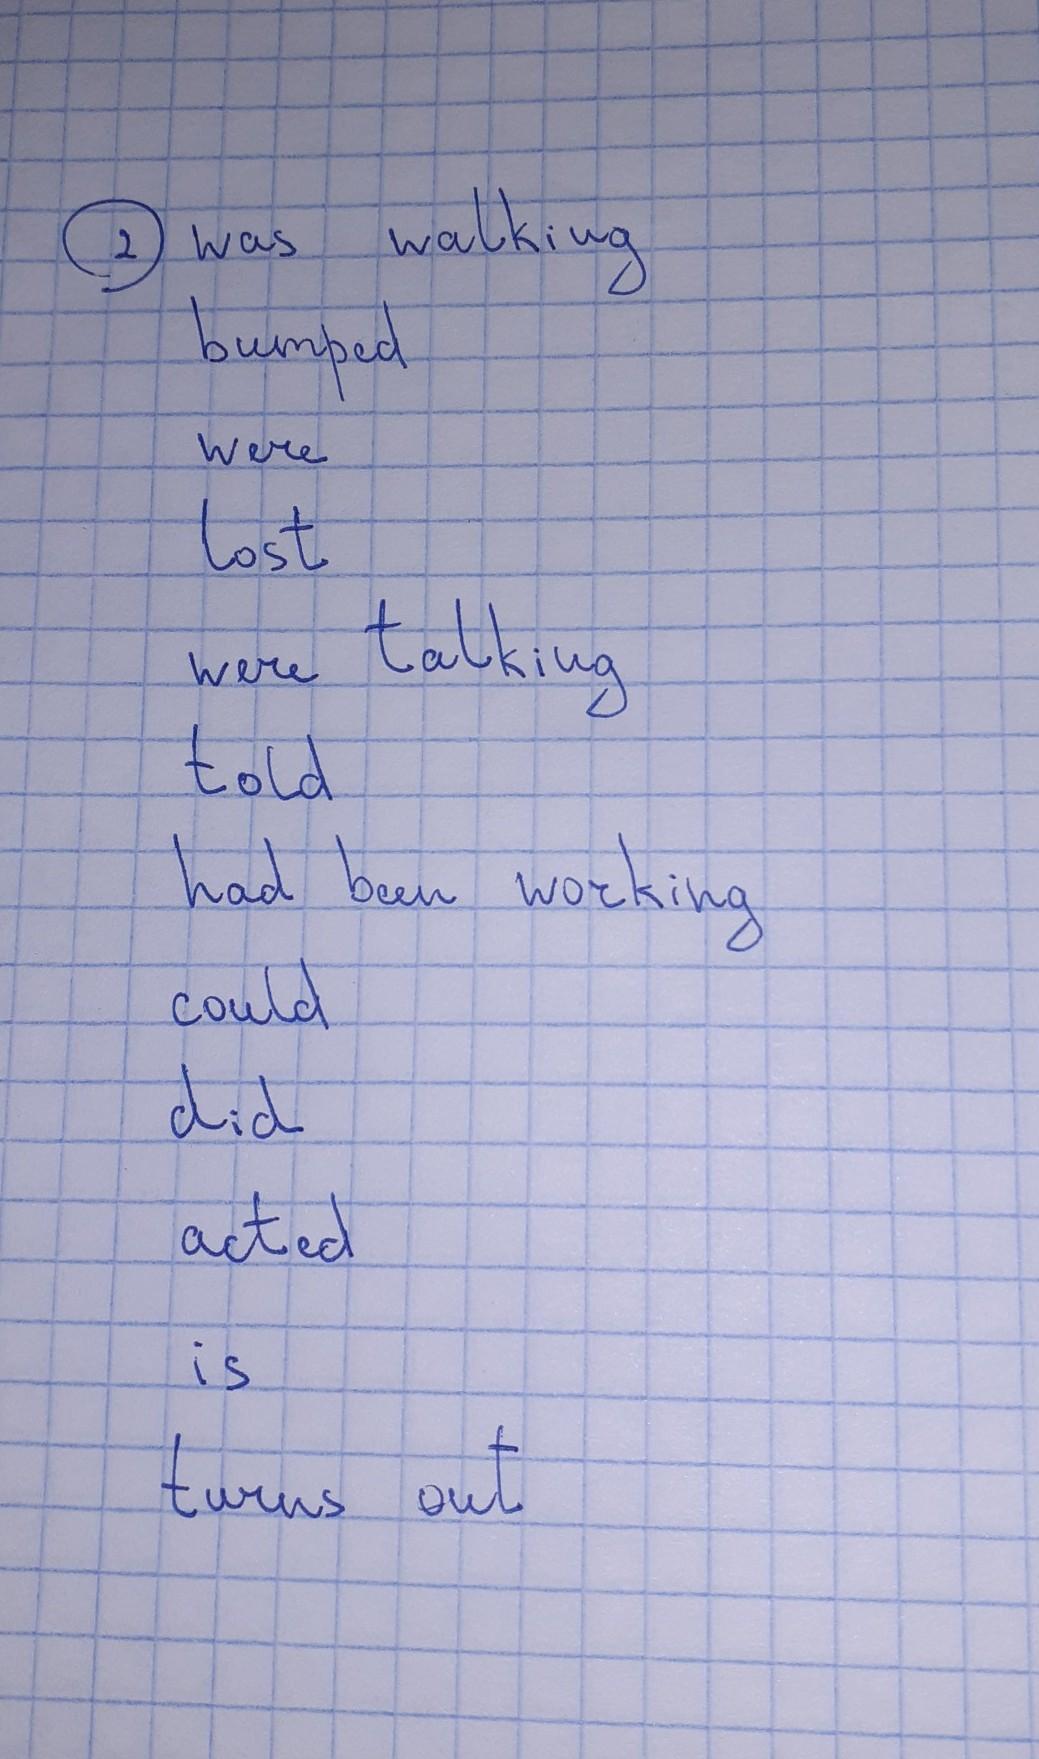 2 was walking
bumped
were
lost
were talking
told
had been working
could
did
acted
is
turns out